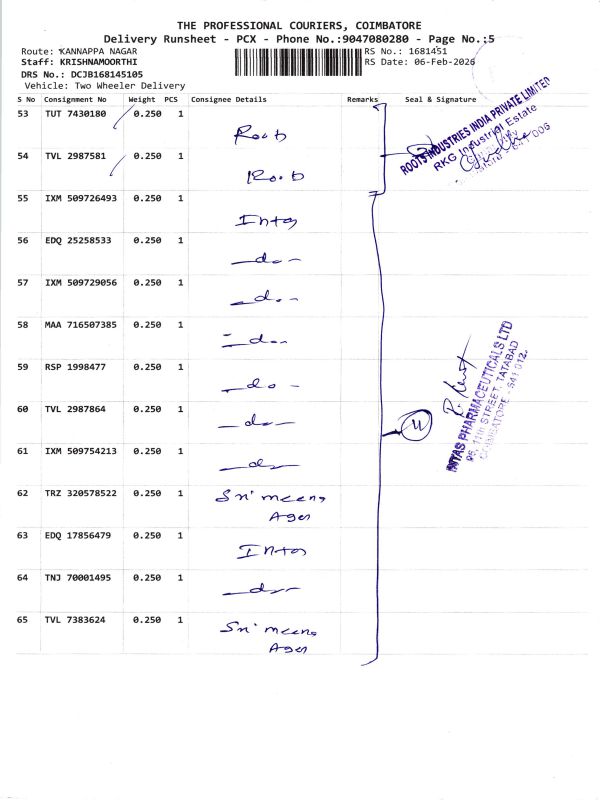 THE PROFESSIONAL COURIERS, COIMBATORE
Delivery Runsheet - PCX - Phone No.:9047080280 - Page No.:5
Route: KANNAPPA NAGAR
RS No.: 1681451
Staff: KRISHNAMOORTHI
RS Date: 06-Feb-2026
DRS No.: DCJB168145105
Vehicle: Two Wheeler Delivery
S No Consignment No Weight PCS Consignee Details Remarks Seal & Signature
53 TUT 7430180 0.250 1
Roots
54 TVL 2987581 0.250 1
Roots
ROOTS INDUSTRIES INDIA PRIVATE LIMITED
RKG Industrial Estate
55 IXM 509726493 0.250 1
Intas
56 EDQ 25258533 0.250 1
-do-
57 IXM 509729056 0.250 1
-do-
58 MAA 716507385 0.250 1
-do-
59 RSP 1998477 0.250 1
-do-
60 TVL 2987864 0.250 1
-do-
61 IXM 509754213 0.250 1
-do-
INTAS PHARMACEUTICALS LTD
95, 11th STREET, TATABAD
COIMBATORE - 641 012.
62 TRZ 320578522 0.250 1
Sri meena
Agen
63 EDQ 17856479 0.250 1
Intas
64 TNJ 70001495 0.250 1
-do-
65 TVL 7383624 0.250 1
Sri meena
Agen